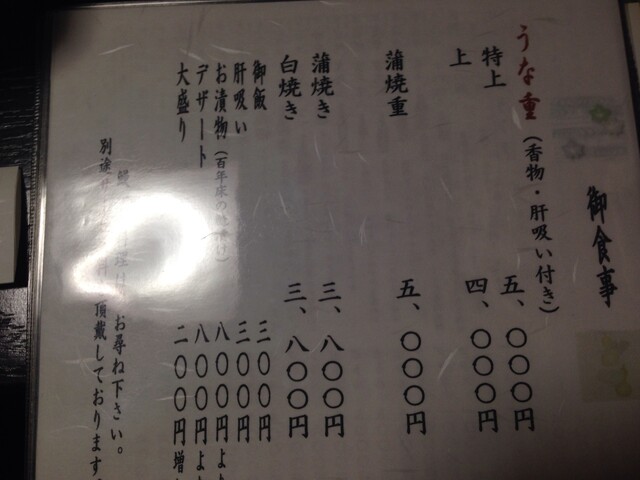 御食事
うな重（香物・肝吸い付き）
特上 五、〇〇〇円
上 四、〇〇〇円
蒲焼重 五、〇〇〇円
蒲焼き 三、八〇〇円
白焼き 三、八〇〇円
御飯 三〇〇円
肝吸い 三〇〇円
お漬物（百年床の 八〇〇円よ
デザート 八〇〇円よ
大盛り 二〇〇円増
お尋ね下さい。
別途サ 頂戴しております。